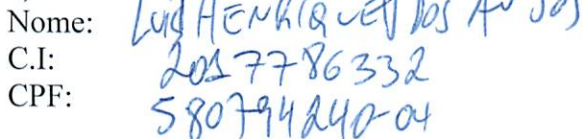 Nome: Luis HENRIQUE DOS ANJOS
C.I: 20177786332
CPF: 580794240-04